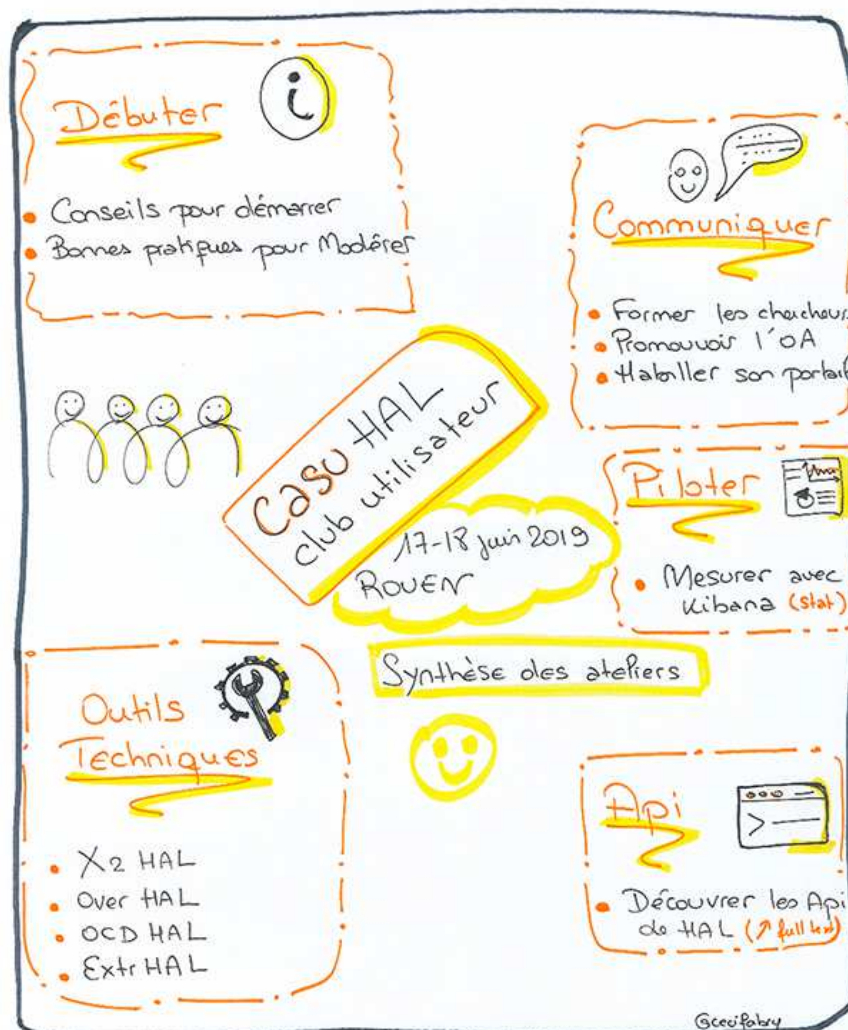 Débuter
• Conseils pour démarrer
• Bonnes pratiques pour Modérer
Communiquer
• Former les chercheurs
• Promouvoir l'OA
• Habiller son portail
Casu HAL
club utilisateur
17-18 juin 2019
ROUEN
Synthèse des ateliers
Piloter
• Mesurer avec
Kibana (stat)
Outils
Techniques
• X2 HAL
• Over HAL
• OCD HAL
• Extr HAL
Api
• Découvrer les Api
de HAL (↗ full text)
@cecifabry